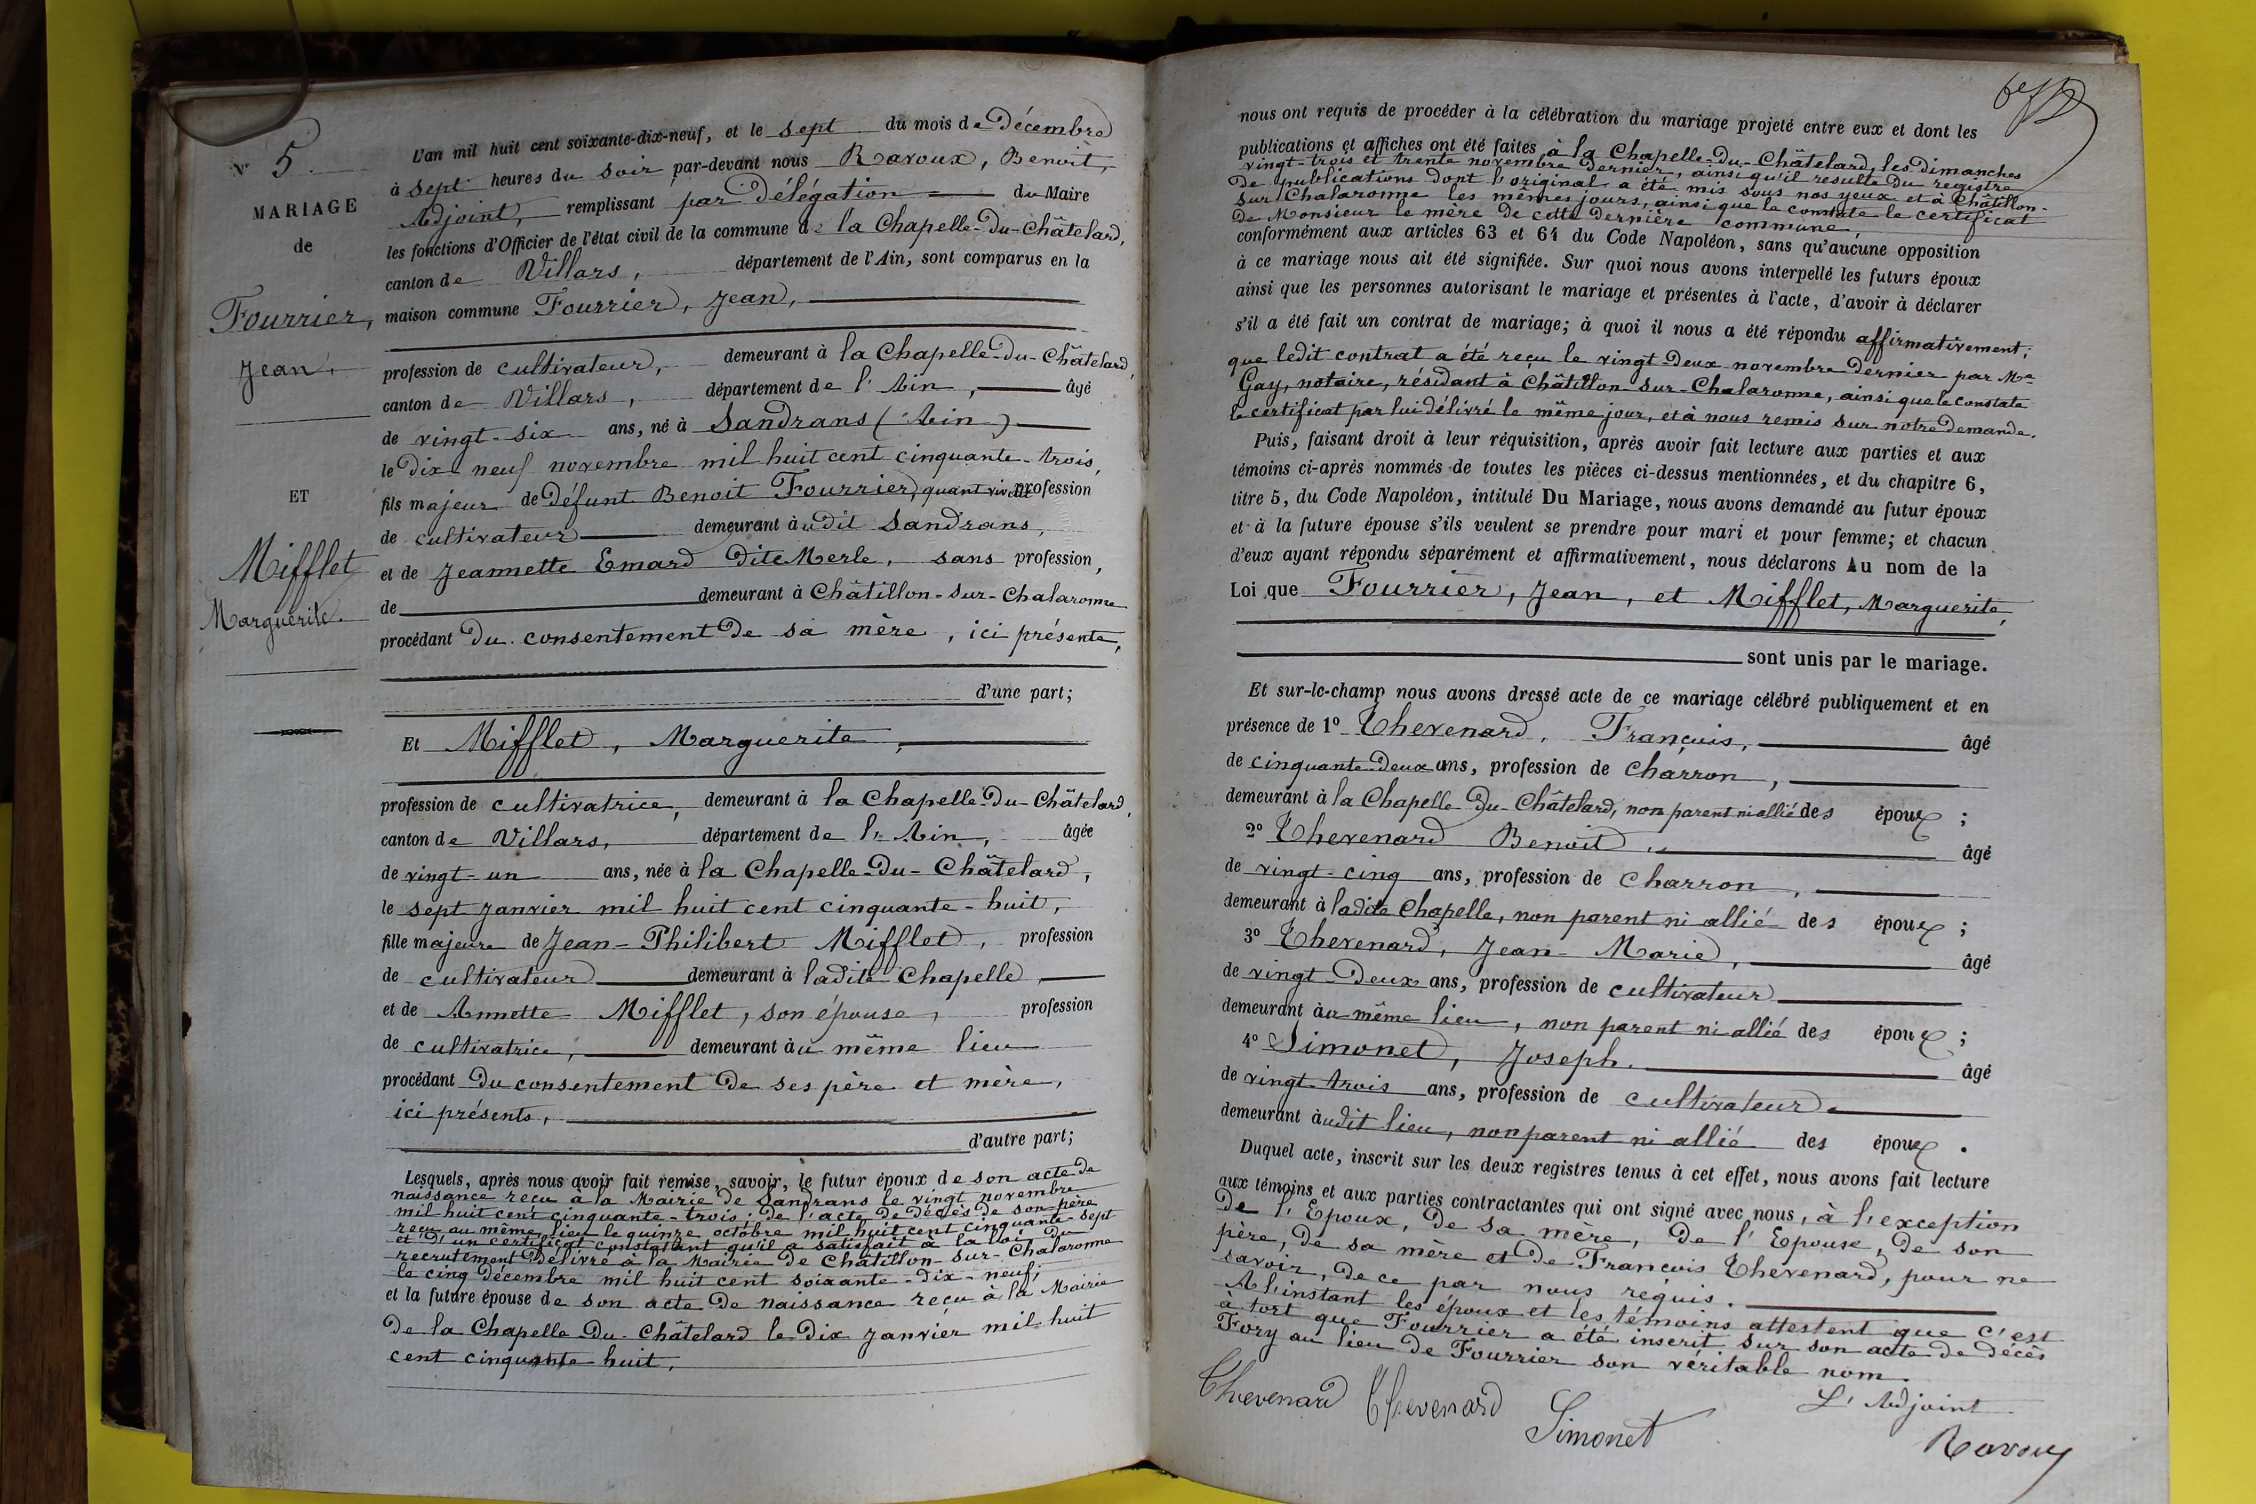 N° 5
MARIAGE
de
Fourrier,
Jean.
ET
Mifflet
Marguerite.
L'an mil huit cent soixante-dix-neuf, et le sept du mois de Décembre
à sept heures du soir par-devant nous Ravoux, Benoit,
Adjoint, remplissant par Délégation du Maire
les fonctions d'Officier de l'état civil de la commune de la Chapelle-Du-Châtelard,
canton de Villars, département de l'Ain, sont comparus en la
maison commune Fourrier, Jean,
profession de cultivateur, demeurant à la Chapelle-Du-Châtelard,
canton de Villars, département de l'Ain, âgé
de vingt-six ans, né à Sandrans (Ain)
le Dix-neuf novembre mil huit cent cinquante-trois,
fils majeur de Défunt Benoit Fourrier, quant vivait profession
de cultivateur demeurant àudit Sandrans,
et de Jeannette Emard Dite Merle, sans profession,
de demeurant à Châtillon-sur-Chalaronne
procédant Du consentement De sa mère, ici présente,
d'une part;
Et Mifflet, Marguerite,
profession de cultivatrice, demeurant à la Chapelle-Du-Châtelard,
canton de Villars, département de l'Ain, âgée
de vingt-un ans, née à la Chapelle-Du-Châtelard,
le sept Janvier mil huit cent cinquante-huit,
fille majeure de Jean-Philibert Mifflet, profession
de cultivateur demeurant à ladite Chapelle,
et de Annette Mifflet, son épouse, profession
de cultivatrice, demeurant àu même lieu
procédant Du consentement De ses père et mère,
ici présents,
d'autre part;
Lesquels, après nous avoir fait remise, savoir, le futur époux de son acte de
naissance reçu à la Mairie de Sandrans le vingt novembre
mil huit cent cinquante-trois; De l'acte De Décès De son père
reçu au même lieu le quinze octobre mil huit cent cinquante-sept
et D'un certificat constatant qu'il a satisfait à la loi Du
recrutement Délivré à la Mairie De Châtillon-sur-Chalaronne
le cinq Décembre mil huit cent soixante-Dix-neuf;
et la future épouse de son acte De naissance reçu à la Mairie
De la Chapelle-Du-Châtelard le Dix Janvier mil huit
cent cinquante huit,
nous ont requis de procéder à la célébration du mariage projeté entre eux et dont les
publications et affiches ont été faites à la Chapelle-Du-Châtelard, les Dimanches
vingt-trois et trente novembre Dernier, ainsi qu'il résulte Du registre
De publications Dont l'original a été mis sous nos yeux et à Châtillon-
sur Chalaronne les mêmes jours, ainsi que le constate le certificat
De Monsieur le mère De cette Dernière commune,
conformément aux articles 63 et 64 du Code Napoléon, sans qu'aucune opposition
à ce mariage nous ait été signifiée. Sur quoi nous avons interpellé les futurs époux
ainsi que les personnes autorisant le mariage et présentes à l'acte, d'avoir à déclarer
s'il a été fait un contrat de mariage; à quoi il nous a été répondu affirmativement,
que ledit contrat a été reçu le vingt Deux novembre Dernier par Me
Gay, notaire, résidant à Châtillon-sur-Chalaronne, ainsi que le constate
le certificat par lui délivré le même jour, et à nous remis sur notre Demande.
Puis, faisant droit à leur réquisition, après avoir fait lecture aux parties et aux
témoins ci-après nommés de toutes les pièces ci-dessus mentionnées, et du chapitre 6,
titre 5, du Code Napoléon, intitulé Du Mariage, nous avons demandé au futur époux
et à la future épouse s'ils veulent se prendre pour mari et pour femme; et chacun
d'eux ayant répondu séparément et affirmativement, nous déclarons Au nom de la
Loi que Fourrier, Jean, et Mifflet, Marguerite,
sont unis par le mariage.
Et sur-le-champ nous avons dressé acte de ce mariage célébré publiquement et en
présence de 1° Thevenard, François, âgé
de cinquante-Deux ans, profession de charron,
demeurant à la Chapelle Du-Châtelard, non parent ni allié des époux;
2° Thevenard Benoit, âgé
de vingt-cinq ans, profession de charron,
demeurant à ladite Chapelle, non parent ni allié des époux;
3° Thevenard, Jean-Marie, âgé
de vingt-Deux ans, profession de cultivateur
demeurant àu même lieu, non parent ni allié des époux;
4° Simonet, Joseph. âgé
de vingt-trois ans, profession de cultivateur.
demeurant àudit lieu, non parent ni allié des époux.
Duquel acte, inscrit sur les deux registres tenus à cet effet, nous avons fait lecture
aux témoins et aux parties contractantes qui ont signé avec nous, à l'exception
De l'Epoux, De sa mère, De l'Epouse, De son
père, De sa mère et De François Thevenard, pour ne
savoir, De ce par nous requis.
A l'instant les époux et les témoins attestent que c'est
à tort que Fourrier a été inscrit sur son acte De décès
Fory au lieu De Fourrier son véritable nom.
Thevenard Thevenard Simonet
L'Adjoint
Ravoux